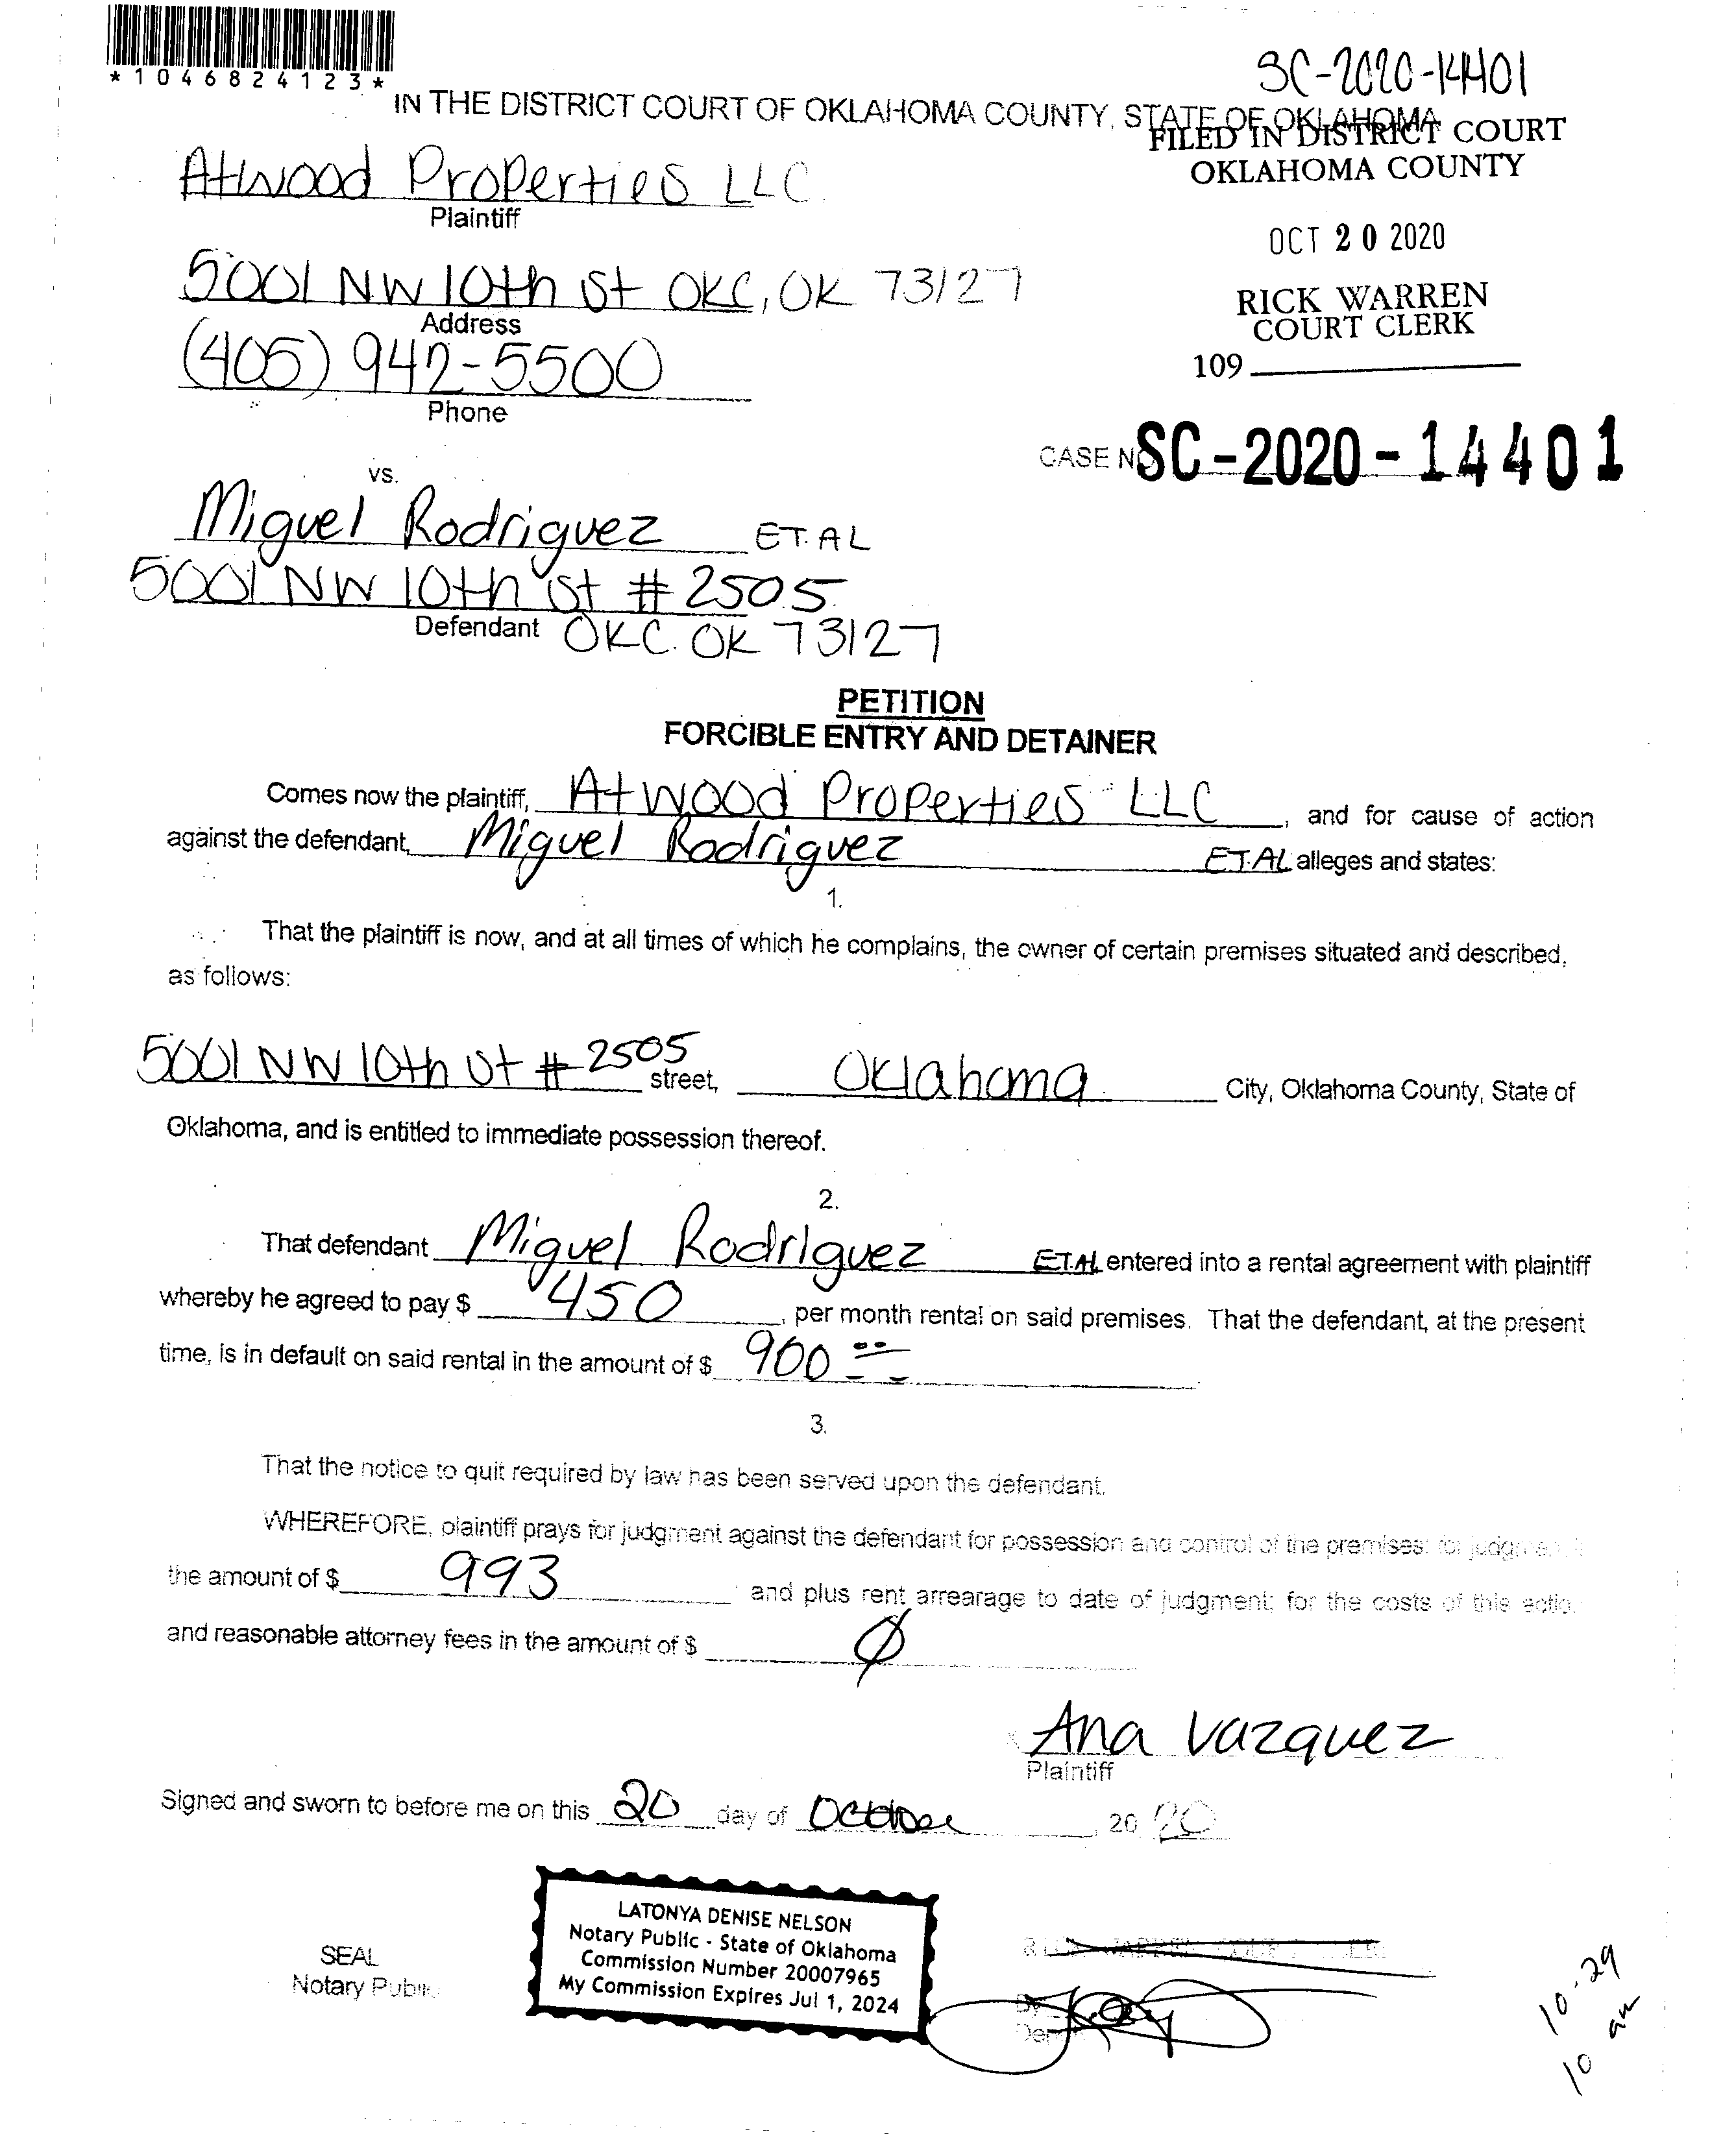 *1046824123*
SC-2020-14401
IN THE DISTRICT COURT OF OKLAHOMA COUNTY, STATE OF OKLAHOMA
FILED IN DISTRICT COURT
OKLAHOMA COUNTY
Atwood Properties LLC
Plaintiff
OCT 20 2020
5001 NW 10th St OKC, OK 73127
Address
RICK WARREN
COURT CLERK
(405) 942-5500
Phone
109
CASE NO SC-2020-14401
vs.
Miguel Rodriguez ET.AL
5001 NW 10th St # 2505
Defendant OKC. OK 73127
PETITION
FORCIBLE ENTRY AND DETAINER
Comes now the plaintiff, Atwood Properties LLC, and for cause of action
against the defendant, Miguel Rodriguez ET.AL alleges and states:
1.
That the plaintiff is now, and at all times of which he complains, the owner of certain premises situated and described,
as follows:
5001 NW 10th St # 2505 street, Oklahoma City, Oklahoma County, State of
Oklahoma, and is entitled to immediate possession thereof.
2.
That defendant Miguel Rodriguez ET.AL entered into a rental agreement with plaintiff
whereby he agreed to pay $ 450, per month rental on said premises. That the defendant, at the present
time, is in default on said rental in the amount of $ 900
3.
That the notice to quit required by law has been served upon the defendant.
WHEREFORE, plaintiff prays for judgment against the defendant for possession and control of the premises: for judgment
the amount of $ 993 and plus rent arrearage to date of judgment: for the costs of this actio
and reasonable attorney fees in the amount of $ Ø
Ana Vazquez
Plaintiff
Signed and sworn to before me on this 20 day of October, 20 20
LATONYA DENISE NELSON
Notary Public - State of Oklahoma
Commission Number 20007965
My Commission Expires Jul 1, 2024
SEAL
Notary Public
RICK WARREN COURT CLERK
By
10-29
10 am